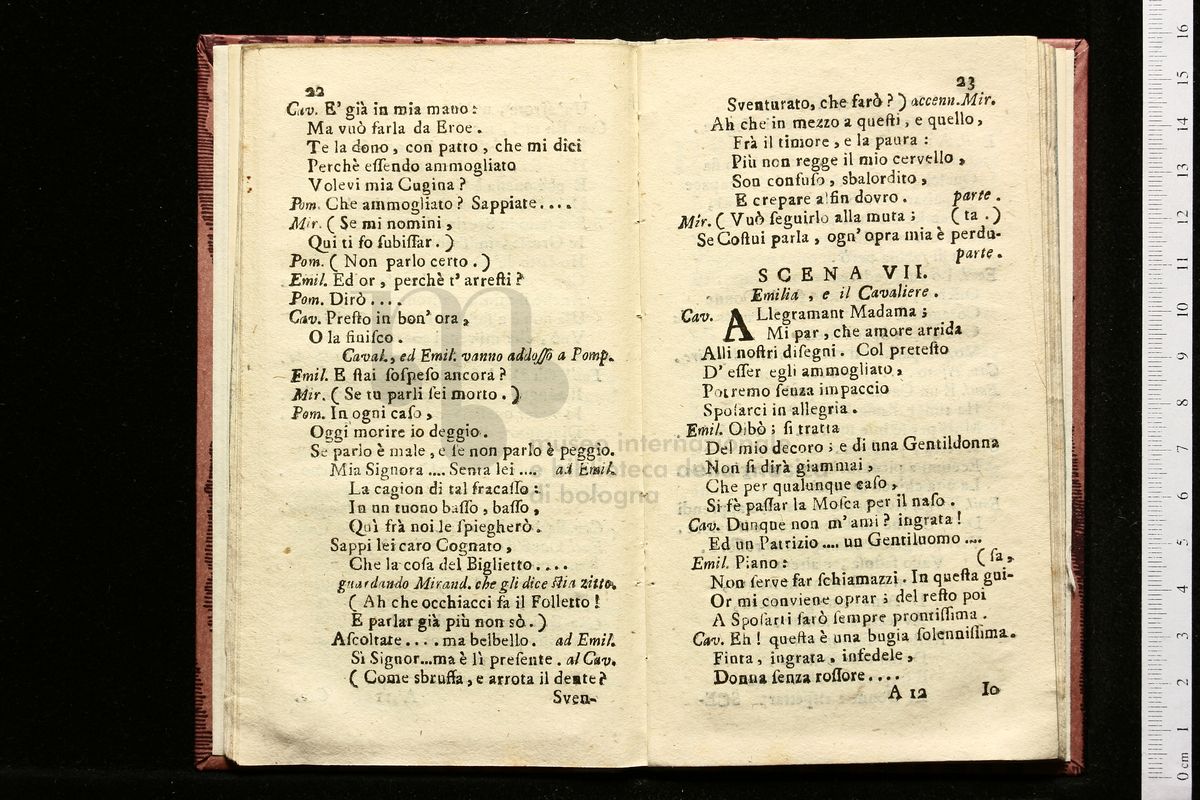 22
Cav. E' già in mia mano:
Ma vuò farla da Eroe.
Te la dono, con patto, che mi dici
Perchè eſſendo ammogliato
Volevi mia Cugina?
Pom. Che ammogliato? Sappiate....
Mir. ( Se mi nomini,
Qui ti fo ſubiſſar. )
Pom. ( Non parlo certo. )
Emil. Ed or, perchè t' arreſti?
Pom. Dirò....
Cav. Preſto in bon' ora,
O la finiſco.
Caval., ed Emil. vanno addoſſo a Pomp.
Emil. E ſtai ſoſpeſo ancora?
Mir. ( Se tu parli ſei morto. )
Pom. In ogni caſo,
Oggi morire io deggio.
Se parlo è male, e ſe non parlo è peggio.
Mia Signora .... Senta lei .... ad Emil.
La cagion di tal fracaſſo;
In un tuono baſſo, baſſo,
Quì frà noi le ſpiegherò.
Sappi lei caro Cognato,
Che la coſa del Biglietto....
guardando Mirand. che gli dice ſtia zitto.
( Ah che occhiacci fa il Folletto!
E parlar già più non sò. )
Aſcoltate.... ma belbello. ad Emil.
Sì Signor...ma è lì preſente. al Cav.
( Come sbruffa, e arrota il dente?
Sven-
23
Sventurato, che farò? ) accenn. Mir.
Ah che in mezzo a queſti, e quello,
Frà il timore, e la paura:
Più non regge il mio cervello,
Son confuſo, sbalordito,
E crepare alfin dovro. parte.
Mir. ( Vuò ſeguirlo alla muta; ( ta. )
Se Coſtui parla, ogn' opra mia è perdu-
parte.
SCENA VII.
Emilia, e il Cavaliere.
Cav. ALlegramant Madama;
Mi par, che amore arrida
Alli noſtri diſegni. Col preteſto
D' eſſer egli ammogliato,
Potremo ſenza impaccio
Spoſarci in allegria.
Emil. Oibò; ſi tratta
Del mio decoro; e di una Gentildonna
Non ſi dirà giammai,
Che per qualunque caſo,
Si fè paſſar la Moſca per il naſo.
Cav. Dunque non m' ami? ingrata!
Ed un Patrizio .... un Gentiluomo ....
Emil. Piano: ( ſa,
Non ſerve far ſchiamazzi. In queſta gui-
Or mi conviene oprar; del reſto poi
A Spoſarti ſarò ſempre prontiſſima.
Cav. Eh! queſta è una bugia ſolenniſſima.
Finta, ingrata, infedele,
Donna ſenza roſſore....
A 12 Io
museo internazionale
e biblioteca della musica
di bologna
0 cm 1 2 3 4 5 6 7 8 9 10 11 12 13 14 15 16